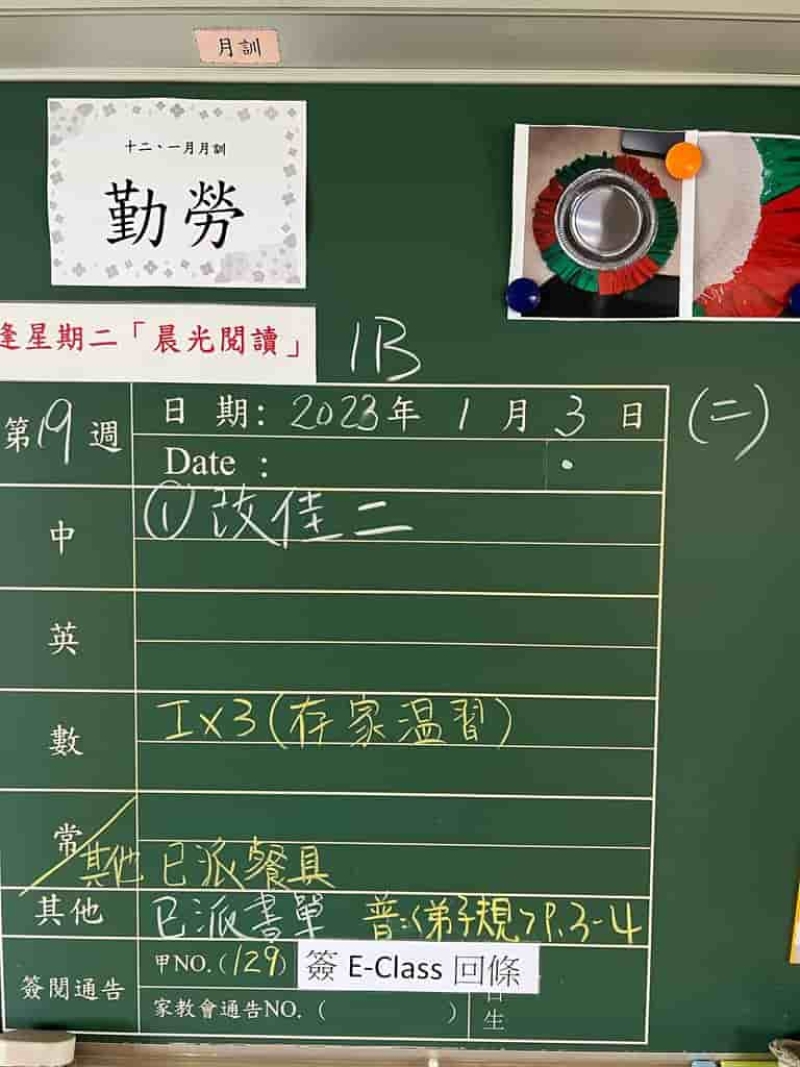 月訓
十二、一月月訓
勤勞
逢星期二「晨光閱讀」
1B
第19週
日期：2023年1月3日 (二)
Date：
中
①改佳二
英
數
工x3(存家温習)
常
其他 已派餐具
其他
已派書單 普:<弟子規>P.3-4
簽閱通告
甲NO.(129)
簽 E-Class 回條
家教會通告NO.( )
生